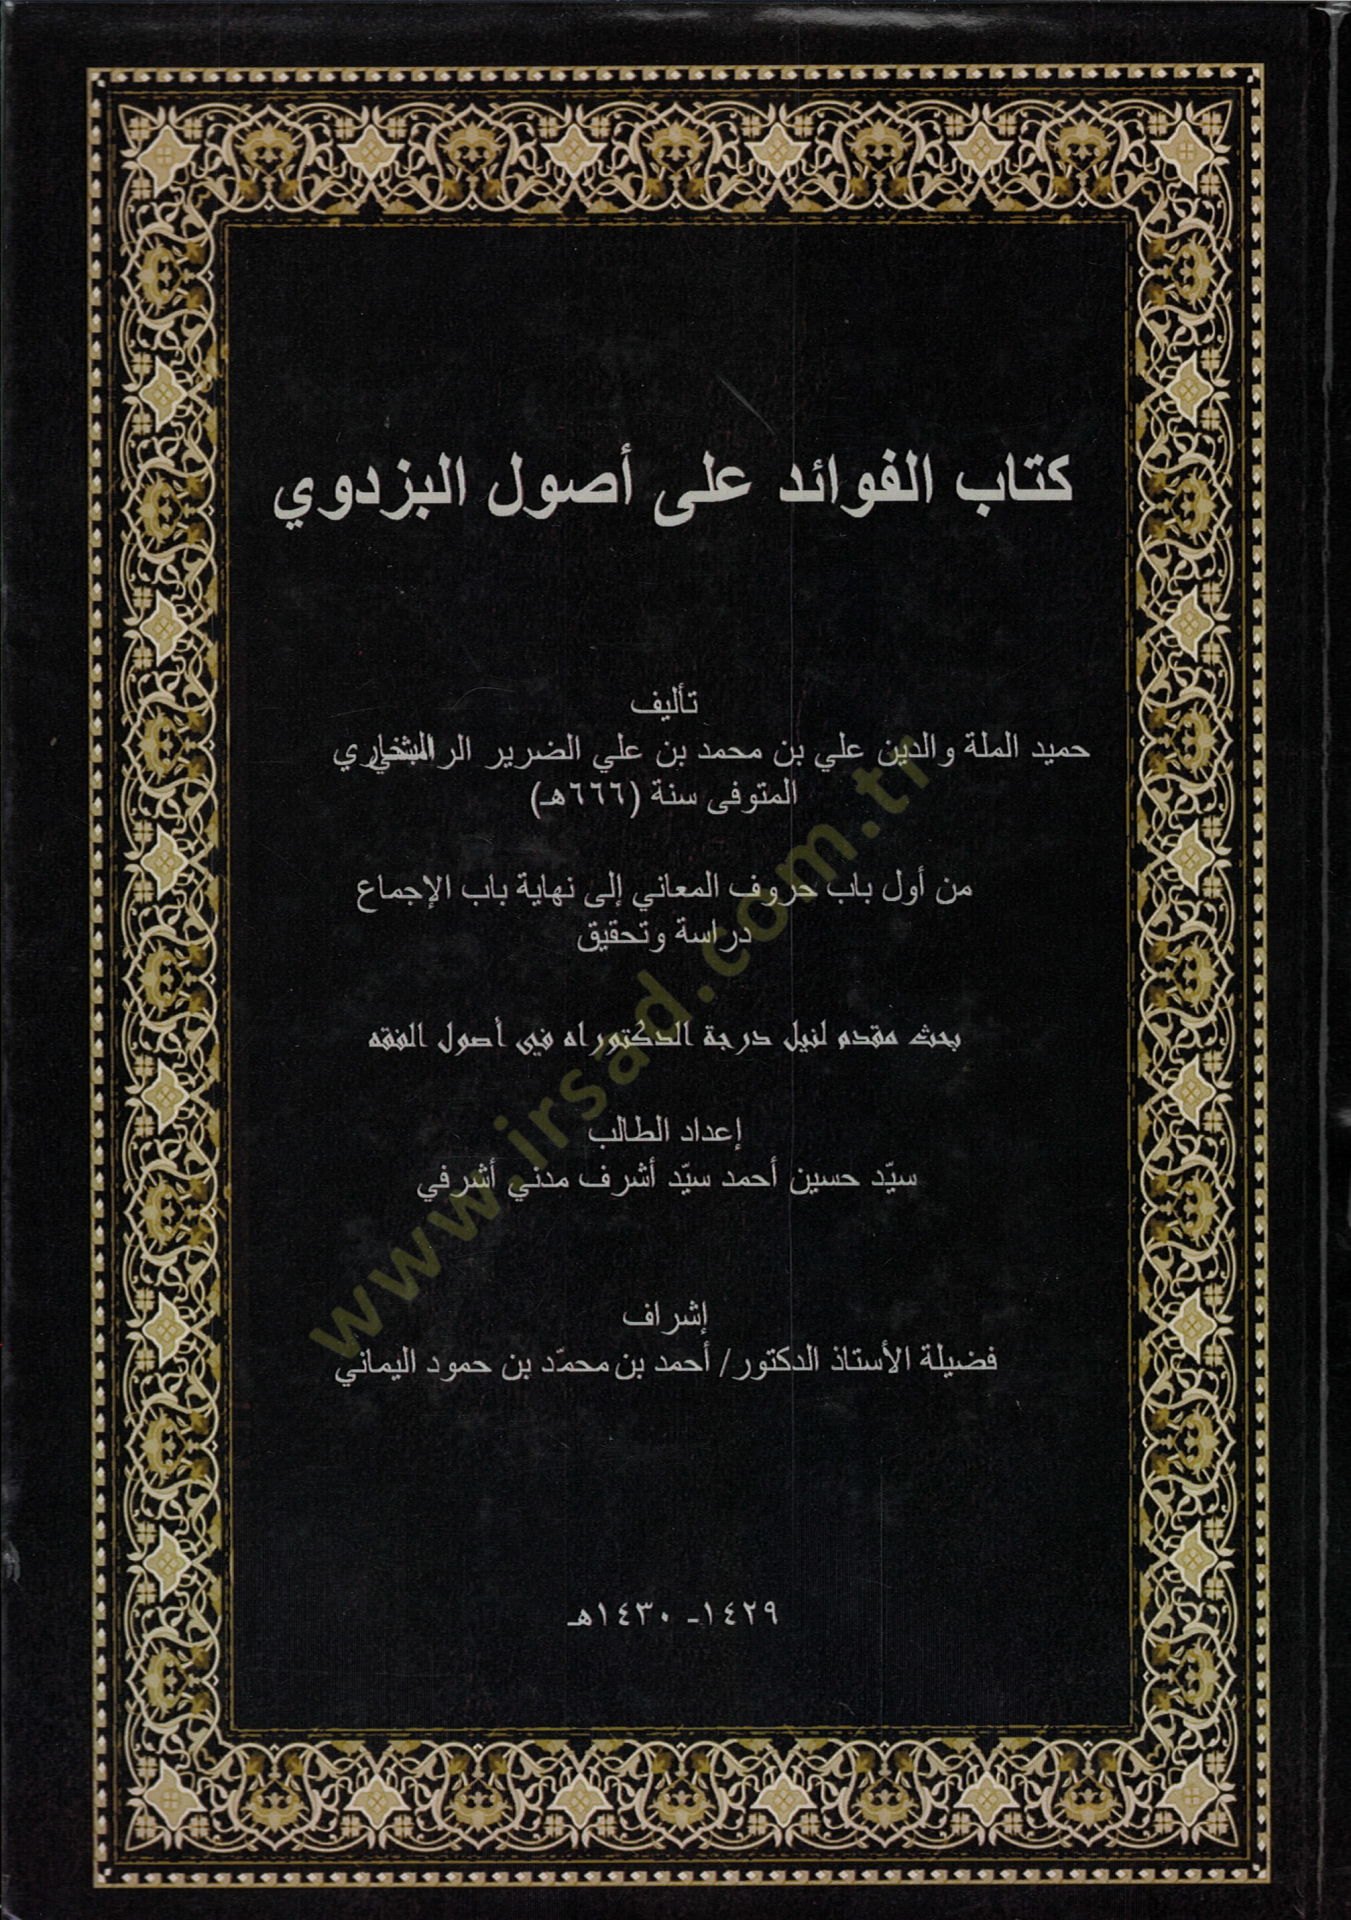 كتاب الفوائد على أصول البزدوي
تأليف
حميد الملة والدين علي بن محمد بن علي الضرير
المتوفى سنة (٦٦٦هـ)
من أول باب حروف المعاني إلى نهاية باب الإجماع
دراسة وتحقيق
بحث مقدم لنيل درجة الدكتوراه في أصول الفقه
إعداد الطالب
سيّد حسين أحمد سيّد أشرف مدني أشرفي
إشراف
فضيلة الأستاذ الدكتور/ أحمد بن محمّد بن حمود اليماني
١٤٢٩- ١٤٣٠هـ
www.irsad.com.tr